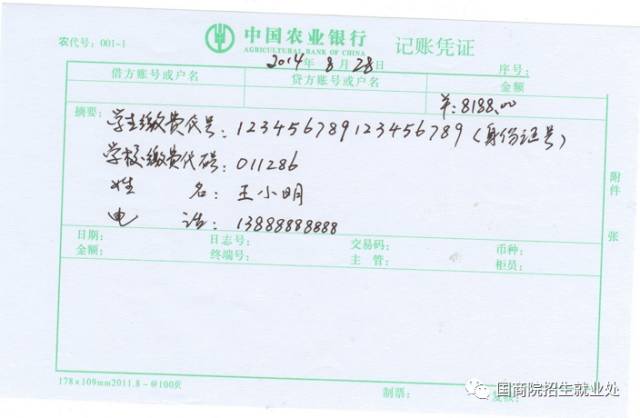 农代号：001-1
中国农业银行 记账凭证
AGRICULTURAL BANK OF CHINA
2014年8月28日 序号：
借方账号或户名 贷方账号或户名 金额
¥：8188.00
摘要：学生缴费代号：123456789123456789（身份证号）
学校缴费代码：011286
姓 名：王小明
电 话：13888888888
附件 张
日期： 日志号： 交易码： 币种：
金额： 终端号： 主 管： 柜员：
178x109mm2011.8-@100页
制票：
国商院招生就业处